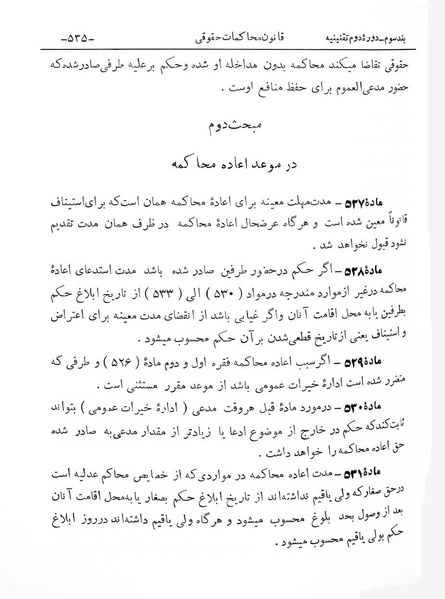 بندسوم_دورهٔ دوم تقنینیه قانون محاکمات حقوقی -۵۳۵-
حقوقی تقاضا میکند محاکمه بدون مداخله او شده وحکم برعلیه طرفی صادرشده که
حضور مدعی‌العموم برای حفظ منافع اوست .
مبحث دوم
در موعد اعاده محاکمه
مادهٔ ۵۲۷ – مدت مهلت معینه برای اعادهٔ محاکمه همان است‌که برای‌استیناف
قانوناً معین شده است و هرگاه عرضحال اعادهٔ محاکمه در ظرف همان مدت تقدیم
نشود قبول نخواهد شد .
مادهٔ ۵۲۸ – اگر حکم درحضور طرفین صادر شده باشد مدت استدعای اعادهٔ
محاکمه درغیر ازموارد مندرجه درمواد ( ۵۳۰ ) الی ( ۵۳۳ ) از تاریخ ابلاغ حکم
بطرفین یابه محل اقامت آنان واگر غیابی باشد از انقضای مدت معینه برای اعتراض
و استیناف یعنی ازتاریخ قطعی‌شدن بر آن حکم محسوب میشود .
مادهٔ ۵۲۹ – اگرسبب اعاده محاکمه فقره اول و دوم مادهٔ ( ۵۲۶ ) و طرفی که
متضرر شده است ادارهٔ خیرات عمومی باشد از موعد مقرر مستثنی است .
مادهٔ ۵۳۰ – درمورد مادهٔ قبل هروقت مدعی ( ادارهٔ خیرات عمومی ) بتواند
ثابت‌کندکه حکم در خارج از موضوع ادعا یا زیادتر از مقدار مدعی‌به صادر شده
حق اعاده محاکمه را خواهد داشت .
مادهٔ ۵۳۱ – مدت اعاده محاکمه در مواردی‌که از خصایص محاکم عدلیه است
درحق صغارکه ولی یاقیم نداشته‌اند از تاریخ ابلاغ حکم بصغار یابه‌محل اقامت آنان
بعد از وصول بحد بلوغ محسوب میشود و هرگاه ولی یاقیم داشته‌اند درروز ابلاغ
حکم بولی یاقیم محسوب میشود .